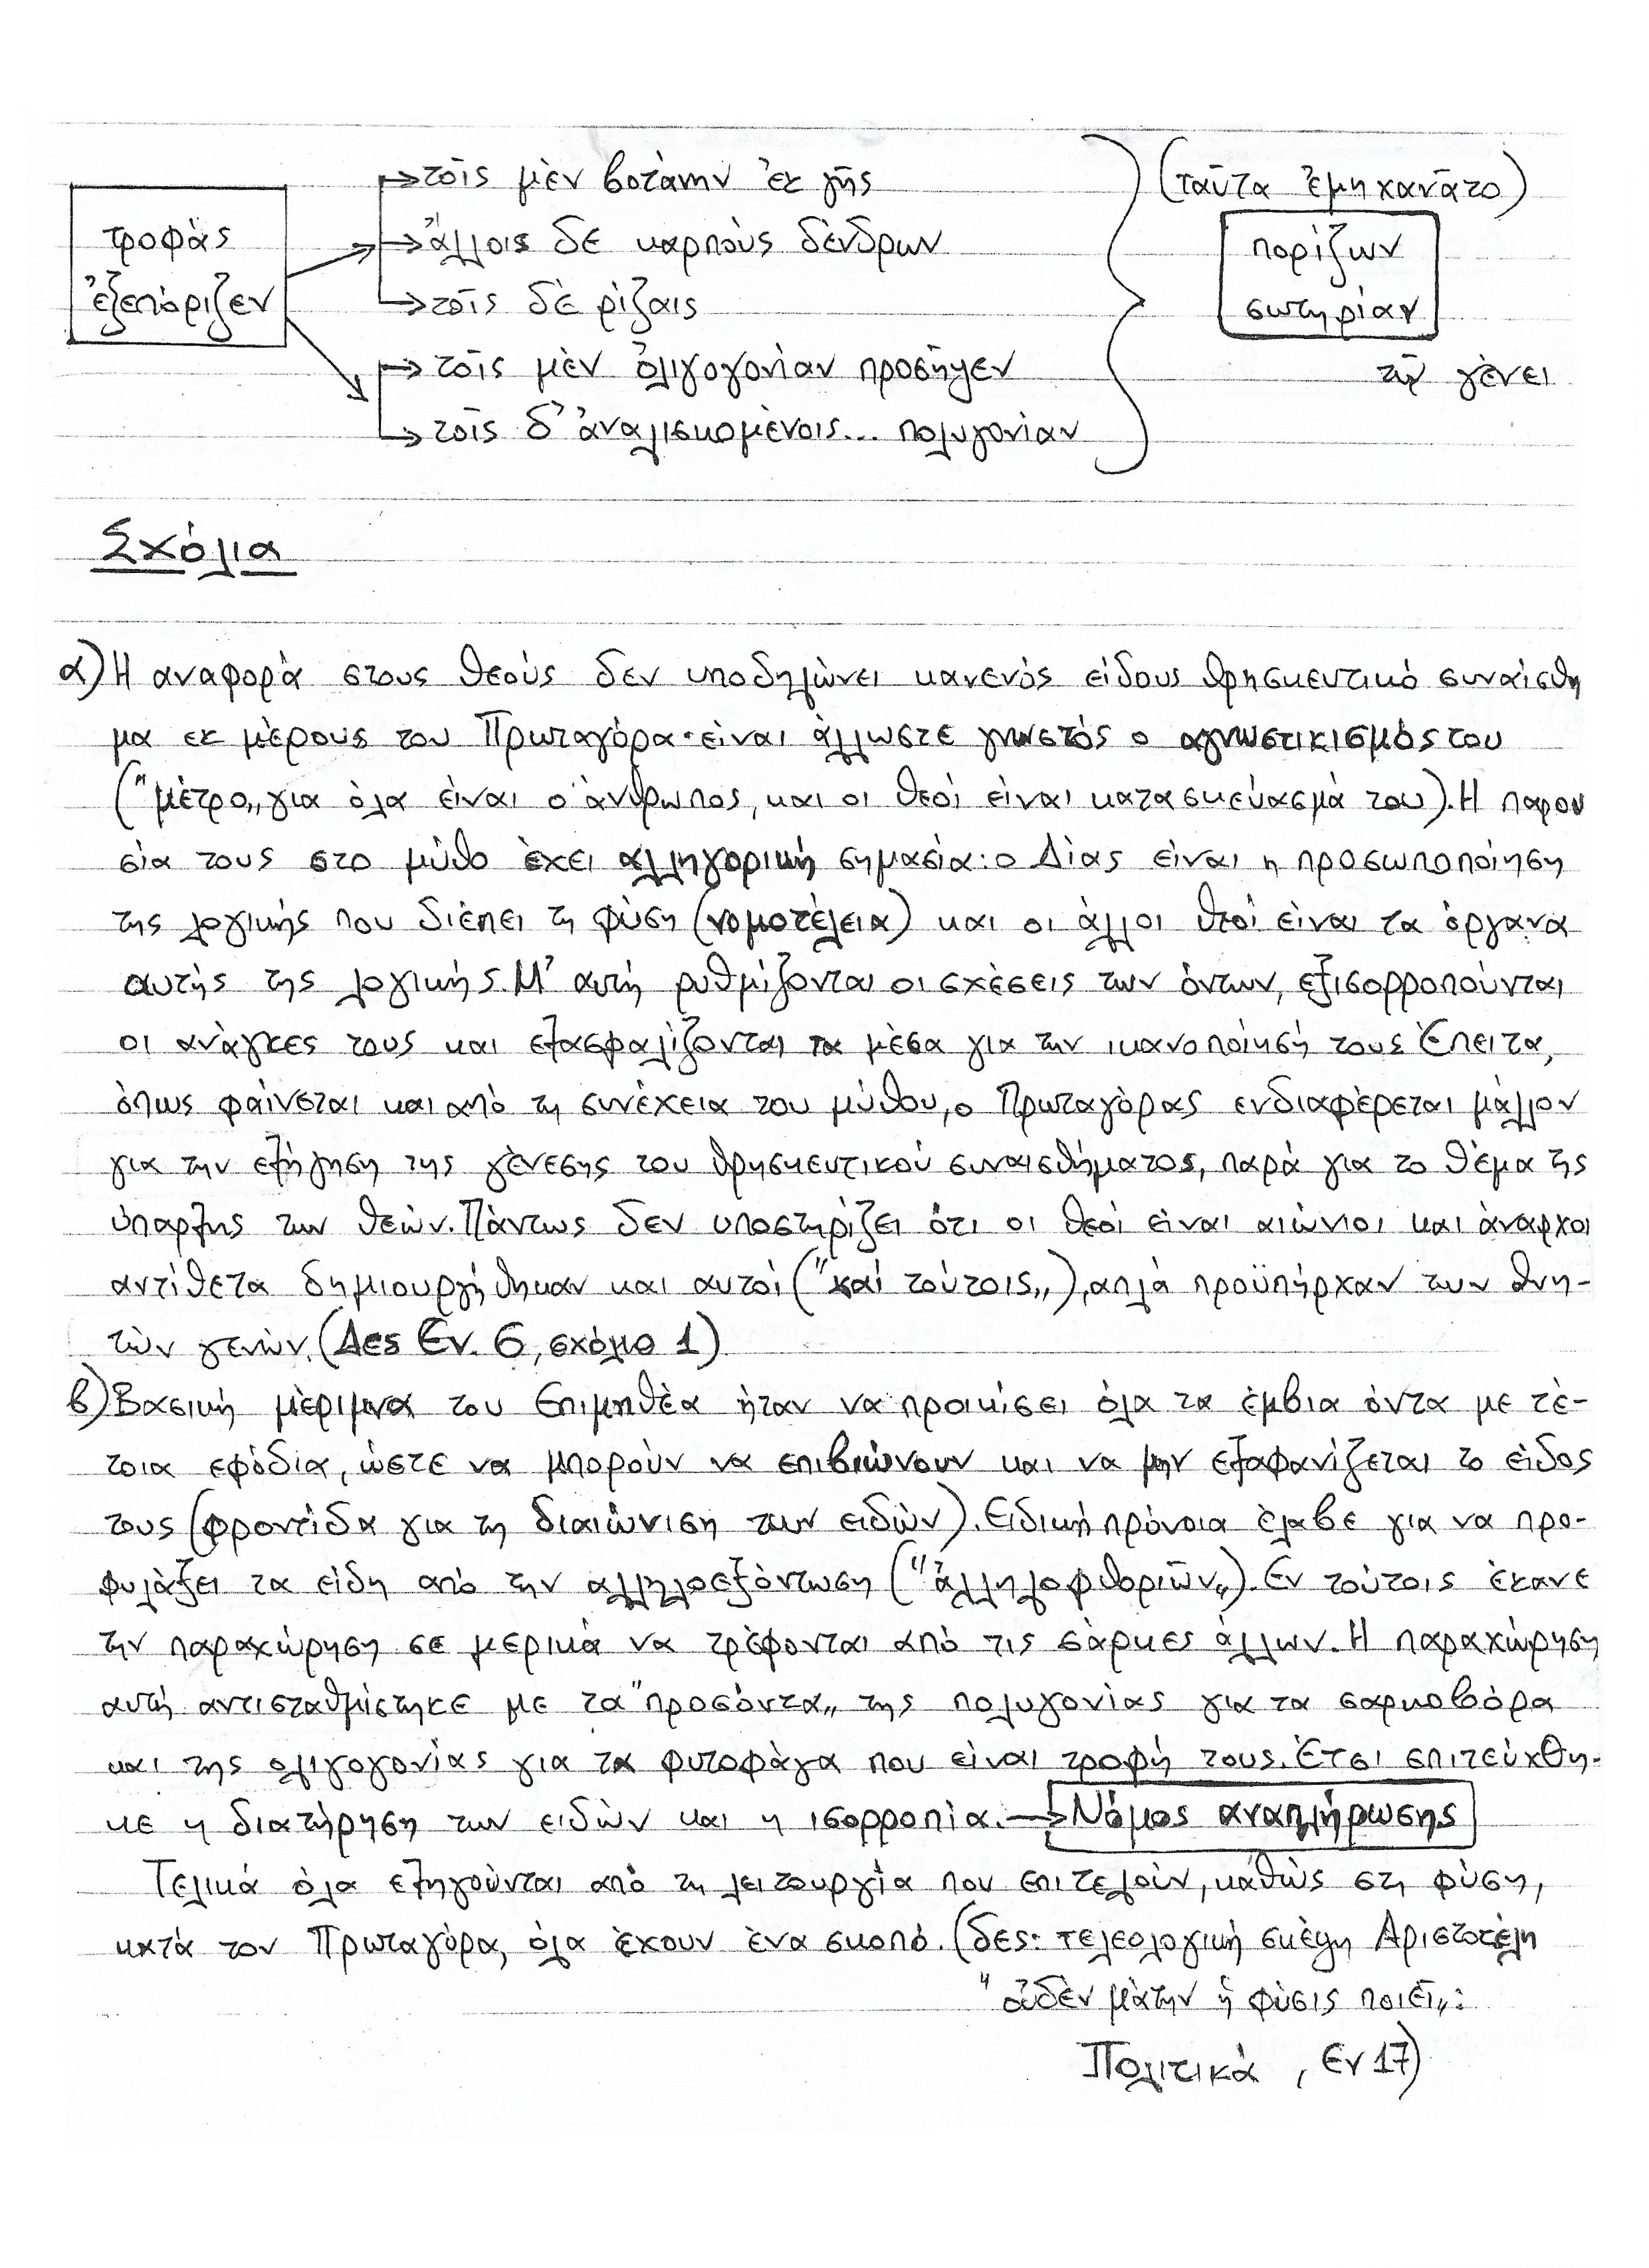 τοῖς μὲν βοτάνην ἐκ γῆς
τροφὰς ἄλλοις δὲ καρποὺς δένδρων
ἐξεπόριζεν τοῖς δὲ ρίζαις
τοῖς μὲν ὀλιγογονίαν προσῆψεν
τοῖς δ᾽ ἀναλισκομένοις... πολυγονίαν
(ταῦτα ἐμηχανᾶτο)
πορίζων
σωτηρίαν
τῷ γένει
Σχόλια
α) Η αναφορά στους θεούς δεν υποδηλώνει κανενός είδους θρησκευτικό συναίσθη
μα εκ μέρους του Πρωταγόρα· είναι άλλωστε γνωστός ο αγνωστικισμός του
("μέτρο„ για όλα είναι ο άνθρωπος, και οι θεοί είναι κατασκεύασμά του). Η παρου
σία τους στο μύθο έχει αλληγορική σημασία: ο Δίας είναι η προσωποποίηση
της λογικής που διέπει τη φύση (νομοτέλεια) και οι άλλοι θεοί είναι τα όργανα
αυτής της λογικής. Μ' αυτή ρυθμίζονται οι σχέσεις των όντων, εξισορροπούνται
οι ανάγκες τους και εξασφαλίζονται τα μέσα για την ικανοποίησή τους. Έπειτα,
όπως φαίνεται και από τη συνέχεια του μύθου, ο Πρωταγόρας ενδιαφέρεται μάλλον
για την εξήγηση της γένεσης του θρησκευτικού συναισθήματος, παρά για το θέμα της
ύπαρξης των θεών. Πάντως δεν υποστηρίζει ότι οι θεοί είναι αιώνιοι και άναρχοι
αντίθετα δημιουργήθηκαν και αυτοί ("καί τούτοις„), απλά προϋπήρχαν των θνη-
τών γενών. (Δες Εν. 6, σχόλιο 1)
β) Βασική μέριμνα του Επιμηθέα ήταν να προικίσει όλα τα έμβια όντα με τέ-
τοια εφόδια, ώστε να μπορούν να επιβιώνουν και να μην εξαφανίζεται το είδος
τους (φροντίδα για τη διαιώνιση των ειδών). Ειδική πρόνοια έλαβε για να προ-
φυλάξει τα είδη από την αλληλοεξόντωση ("ἀλληλοφθοριῶν„). Εν τούτοις έκανε
την παραχώρηση σε μερικά να τρέφονται από τις σάρκες άλλων. Η παραχώρηση
αυτή αντισταθμίστηκε με τα "προσόντα„ της πολυγονίας για τα σαρκοβόρα
και της ολιγογονίας για τα φυτοφάγα που είναι τροφή τους. Έτσι επιτεύχθη-
κε η διατήρηση των ειδών και η ισορροπία. → Νόμος αναπλήρωσης
Τελικά όλα εξηγούνται από τη λειτουργία που επιτελούν, καθώς στη φύση,
κατά τον Πρωταγόρα, όλα έχουν ένα σκοπό. (δες: τελεολογική σκέψη Αριστοτέλη
"οὐδὲν μάτην ἡ φύσις ποιεῖ„:
Πολιτικά, Εν 17)